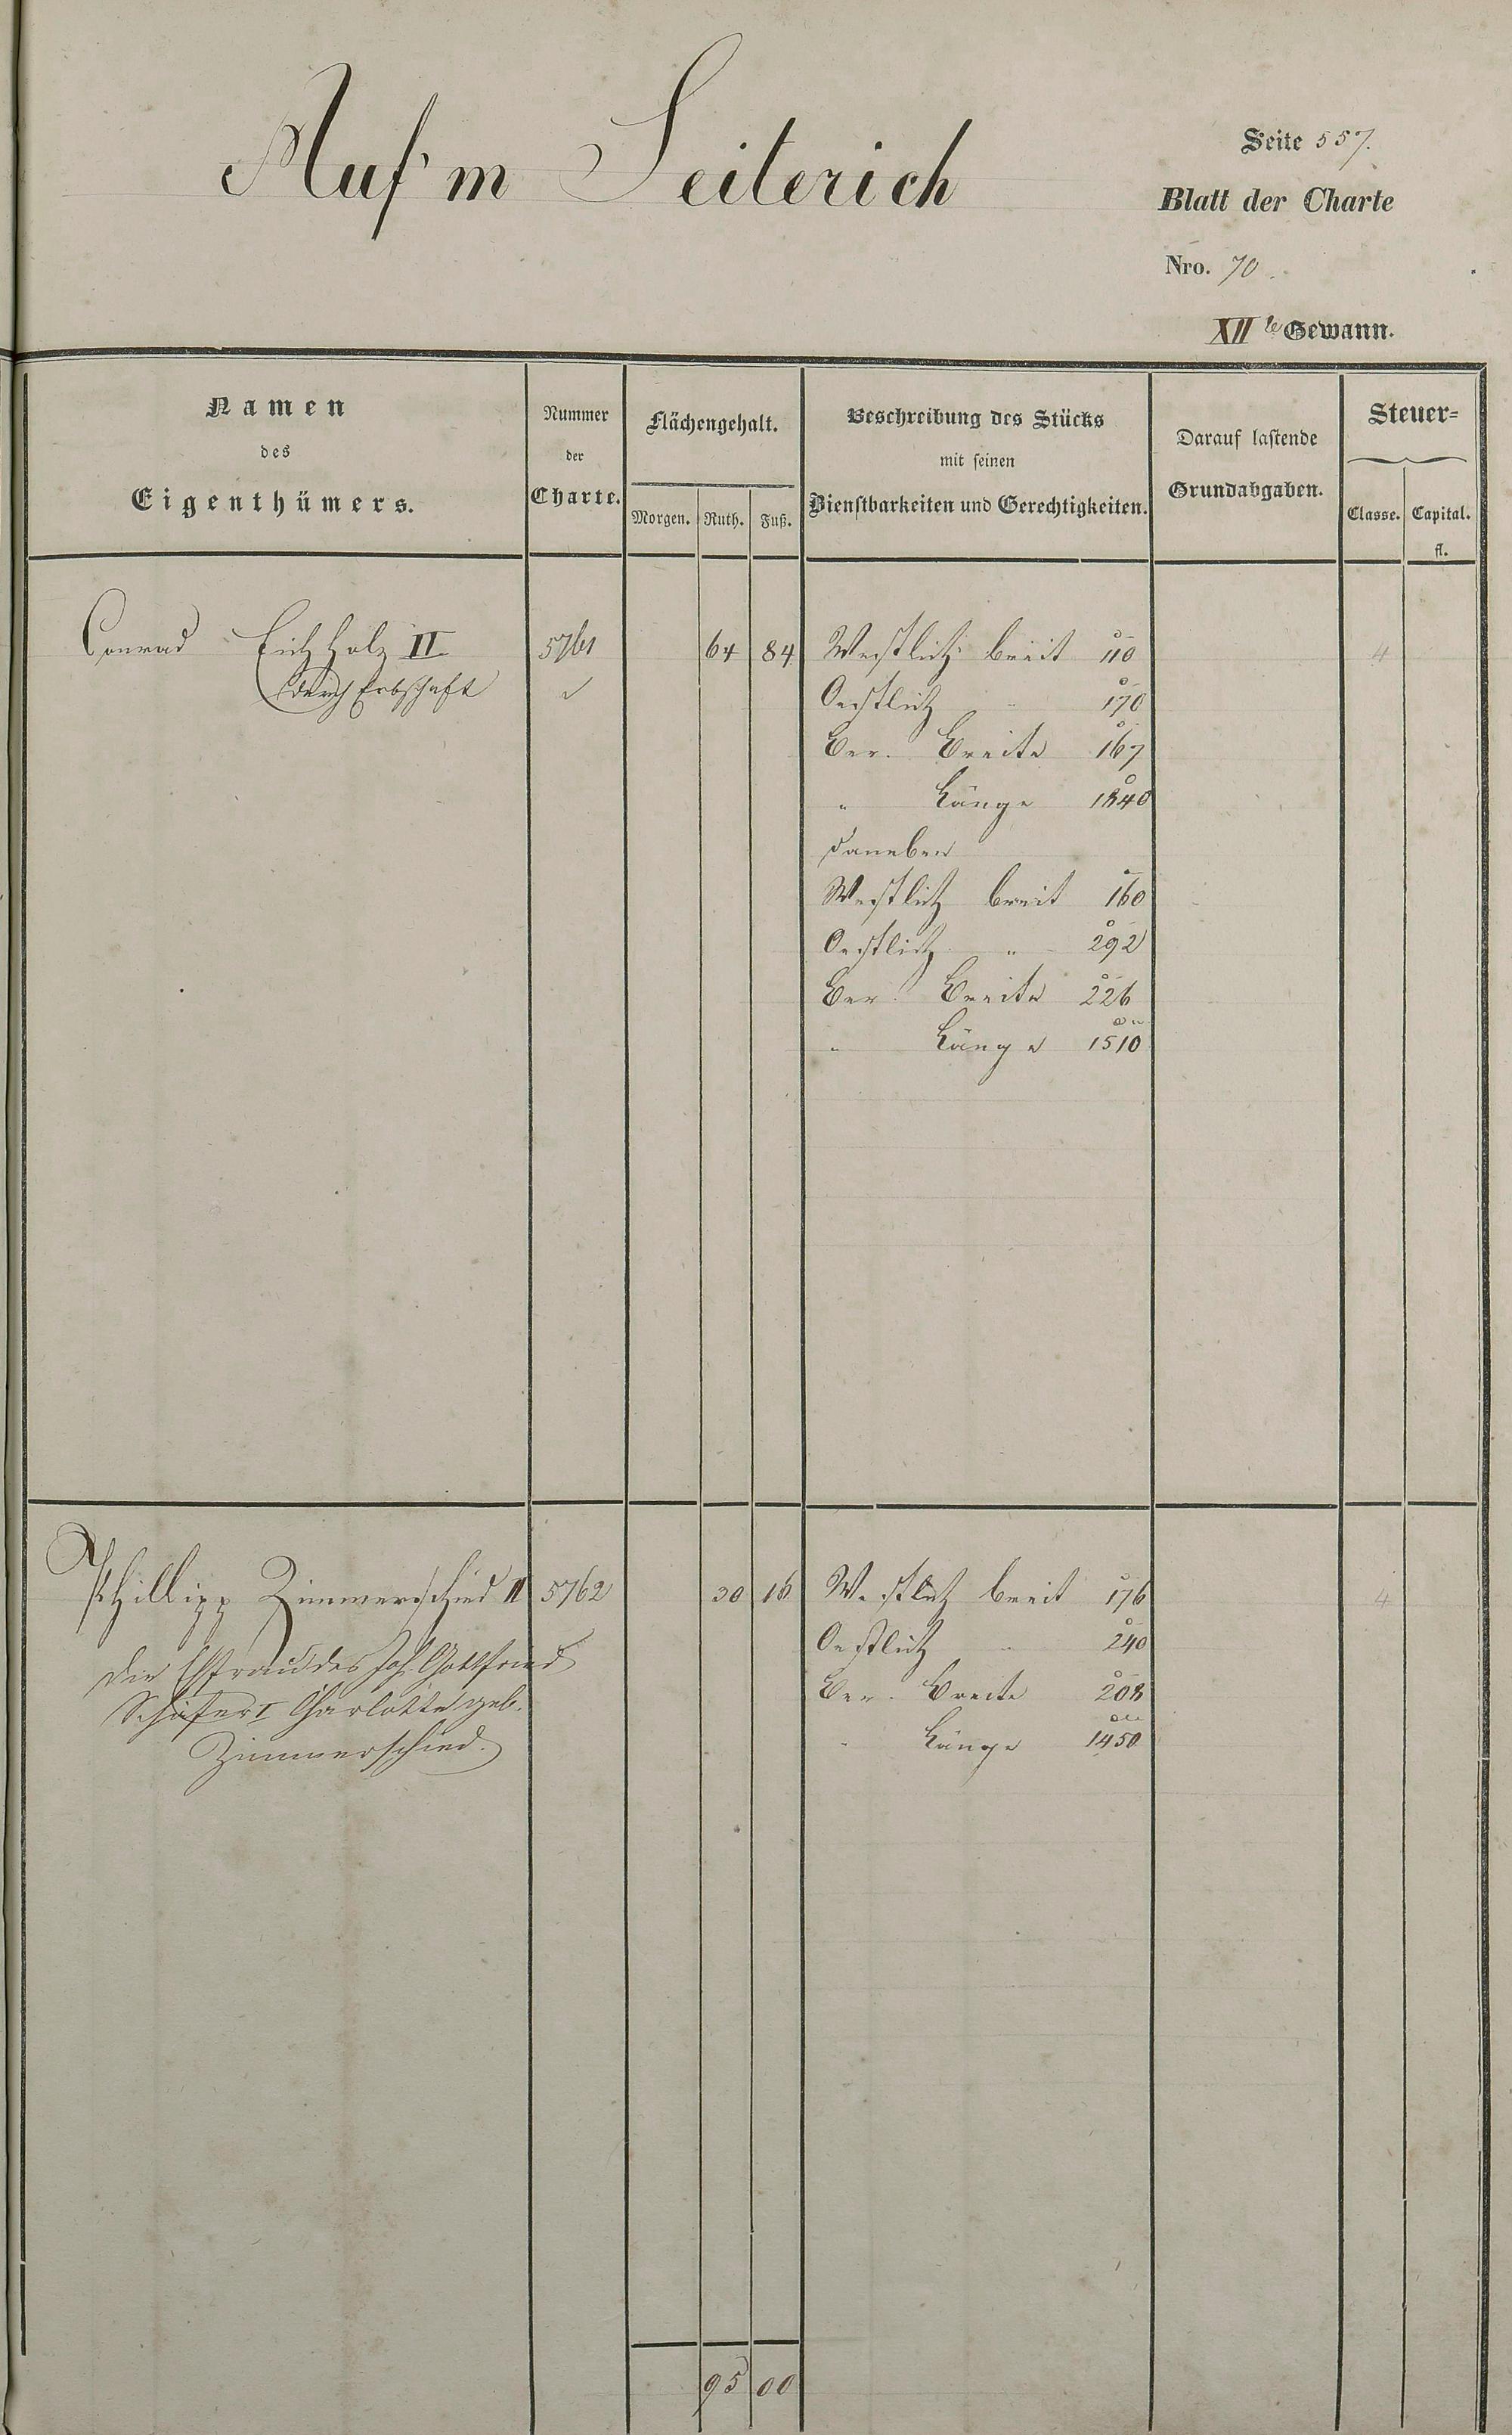 Auf'm Seiterich
Seite 557.
Blatt der Charte
Nro. 70.
XII te Gewann.
Namen
des
Eigenthümers.
Nummer
der
Charte.
Flächengehalt.
Morgen. Ruth. Fuß.
Beschreibung des Stücks
mit seinen
Dienstbarkeiten und Gerechtigkeiten.
Darauf lastende
Grundabgaben.
Steuer=
Classe. Capital.
fl.
Conrad Eichholz II 5761 64 84 Westlich breit 110 4
durch Erbschaft Oestlich " 170
Ber. Breite 167
" Länge 1840
daneben
Westlich breit 160
Oestlich " 292
Ber. Breite 226
" Länge 1510
Phillipp Zimmerschied II 5762 30 16 Westlich breit 176 4
Die Ehfrau des Joh. Gottfried Oestlich " 240
Schäfer I Charlotte geb. Ber. Breite 208
Zimmerschied. " Länge 1450
95 00